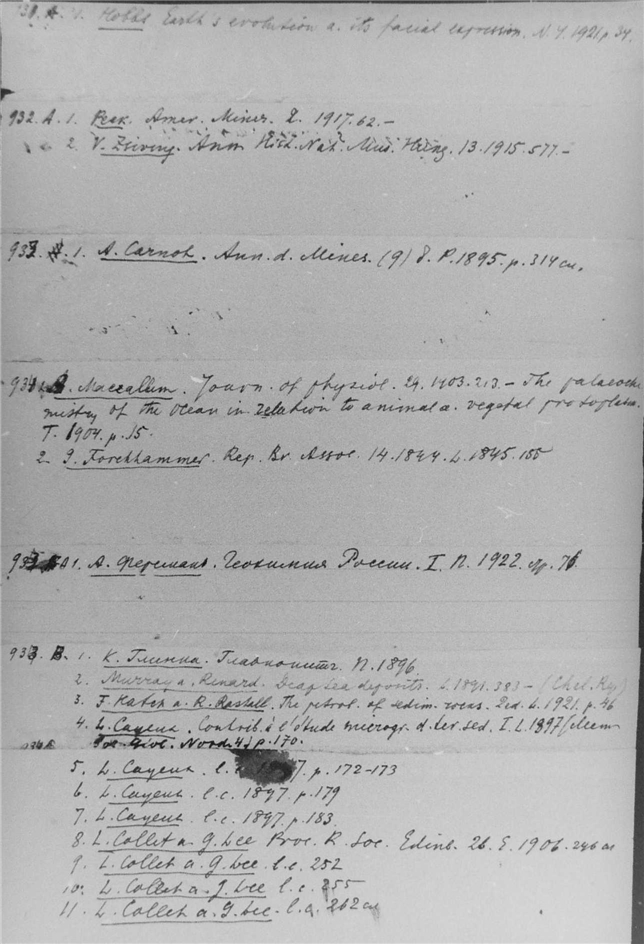 Hobbs Earth's evolution a. its facial expression. N.Y. 1921 p. 34.
932. A. 1. Amer. Miner. 2. 1917. 62. –
2. V. Zsiviny. Ann. Hist. Nat. Mus. Hung. 13. 1915. 577. –
933. 1. A. Carnot. Ann. d. Mines. (9) 8. P. 1895. p. 314
934. Maccallum. Journ. of physiol. 29. 1903. 213. – The palaeoche
mistry of the ocean in relation to animal a. vegetal protoplasm.
T. 1904. p. 15.
2 G. Forchhammer. Rep. Br. Assoc. 14. 1844. L. 1845. 155
A1. А. Ферсман. Геохимия России. I. П. 1922. стр. 76
B. 1. К. Глинка. Глауконит. П. 1896
2. Murray a. Renard. Deep Sea deposits. L. 1891. 383 –
3. F. Hatch a. R. Rastall. The petrol. of sedim. rocks. 2 ed. L. 1921. p. 46
4. L. Cayeux. Contrib. à l'étude microgr. d. ter. sed. I. L. 1897 (Mem
Soc. Géol. Nord. 4) p. 170.
5. L. Cayeux. l. c. p. 172–173
6. L. Cayeux. l. c. 1897. p. 179
7. L. Cayeux. l. c. 1897. p. 183.
8. L. Collet a. G. Lee Proc. R. Soc. Edinb. 26. E. 1906. 246
9. L. Collet a. G. Lee l. c. 252
10. L. Collet a. G. Lee l. c. 255
11. L. Collet a. G. Lee. l. c. 262